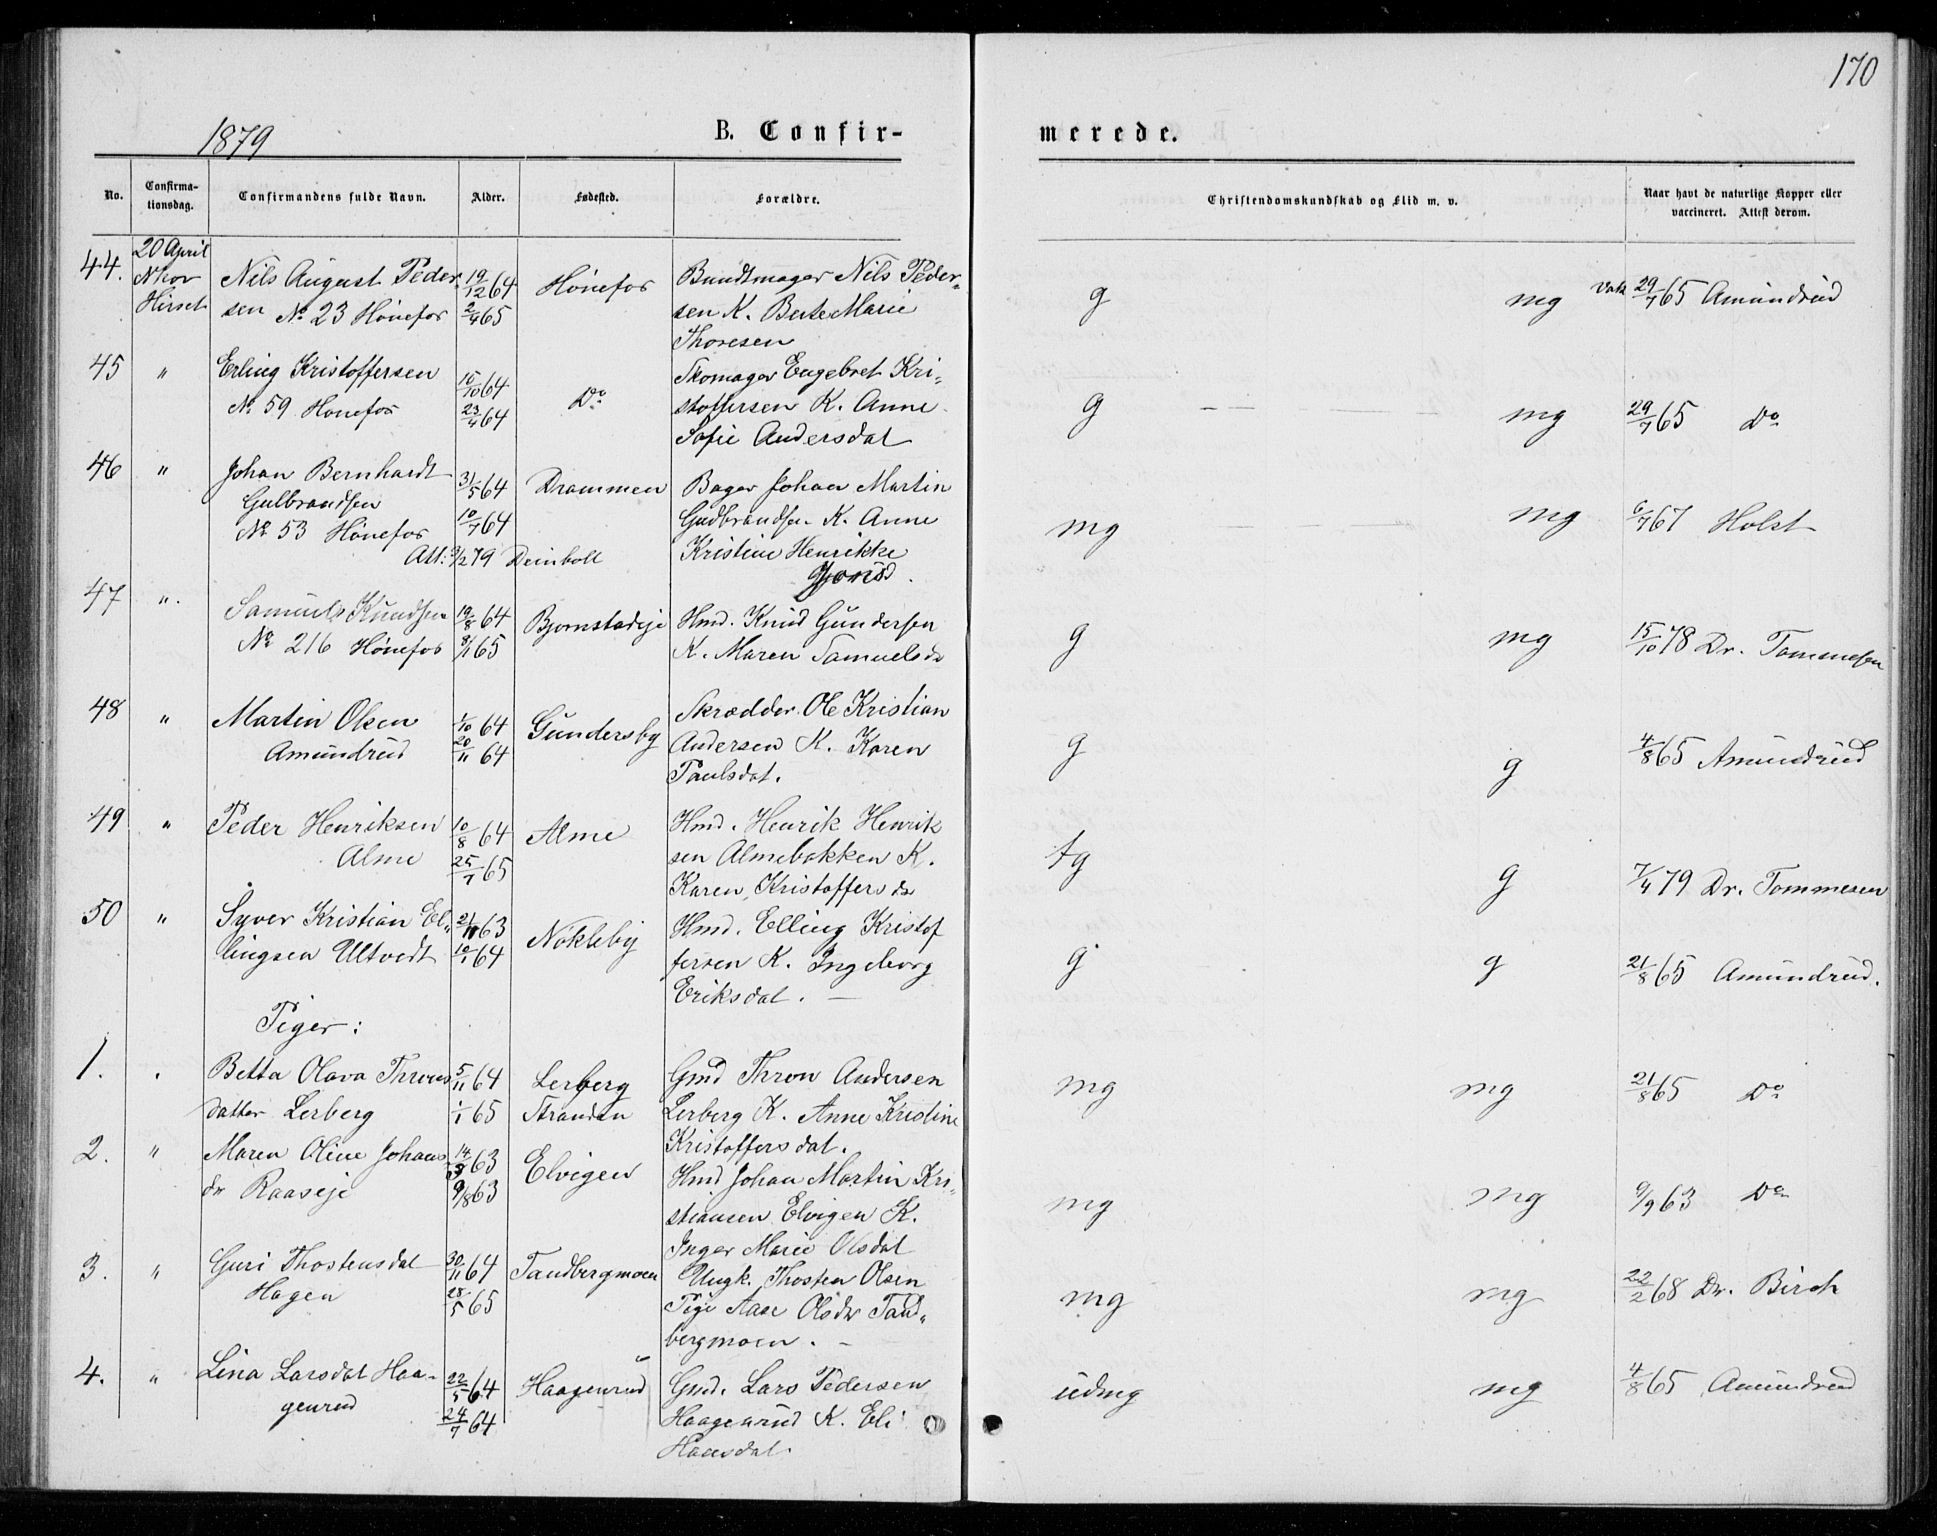 170
1879
B. Confir-
merede.
No.
Confirma-
tionsdag.
Confirmandens fulde Navn.
Alder.
Fødested.
Forældre.
Christendomskundskab og Flid m. v.
Naar havt de naturlige Kopper eller
vaccineret. Attest derom.
44.
20 April
Hirset
Nils August Peder-
sen No 23 Hönefos
19/12 64
2/4 65
Hönefos
Bundtmager Nils Peder-
sen K. Berte Marie
Thoresen
g
mg
Vakc 29/7 65 Amundrud
45
"
Erling Kristoffersen
No 59 Hönefos
15/10 64
23/4 64
Do
Skomager Engebret Kri-
stoffersen K. Anne
Sofie Andersdat
g — — — mg
29/7 65 Do
46
"
Johan Bernhardt
Gulbrandsen
No 53 Hönefos
Att: 3/2 79 Deinboll
31/5 64
10/7 64
Drammen
Bager Johan Martin
Gudbrandsen K. Anne
Kristine Henrikke
Jonsd.
mg
mg
6/7 67 Holst
47
"
Samuel Knudsen
No 216 Hönefos
19/8 64
8/1 65
Bjornstadeje
Hmd. Knud Gundersen
K. Maren Samuelsdr
g
mg
15/10 78 Dr. Tommesen
48
"
Martin Olsen
Amundrud
1/10 64
20/11 64
Gundersby
Skrædder Ole Kristian
Andersen K. Karen
Paulsdat.
g
g
4/8 65 Amundrud
49
"
Peder Henriksen
Alme
10/8 64
25/7 65
Alme
Hmd. Henrik Henrik
sen Almebakken K.
Karen Kristoffersdr
tg
g
7/4 79 Dr. Tommesen
50
"
Syver Kristian El-
lingsen Ultvedt
21/11 63
10/1 64
Nökleby
Hmd. Elling Kristof
fersen K. Ingeborg
Eriksdat. —
g
g
21/8 65 Amundrud.
Piger:
1.
Betta Olava Throns
datter Lerberg
5/11 64
1/1 65
Lerberg
Stranden
Gmd Thron Andersen
Lerberg K. Anne Kristine
Kristoffersdat.
mg
mg
21/8 65 Do
2.
"
Maren Oline Johans
dr Raaseje
63
9/8 63
Elvigen
Hmd Johan Martin Kri-
stiansen Elvigen K.
Inger Marie Olsdat
mg
mg
9/9 63 Do
3.
"
Guri Thostensdat
Hagen
30/11 64
28/5 65
Tandbergmoen
Ungk. Thosten Olsen
Pige Aase Olsdr Tand-
bergmoen. —
mg
mg
22/2 68 Dr. Birch
4.
"
Lina Larsdat Haa-
genrud
22/5 64
24/7 64
Haagenrud
Gmd. Lars Pedersen
Haagenrud K. Eli
Hansdat.
udmg
mg
4/8 65 Amundrud